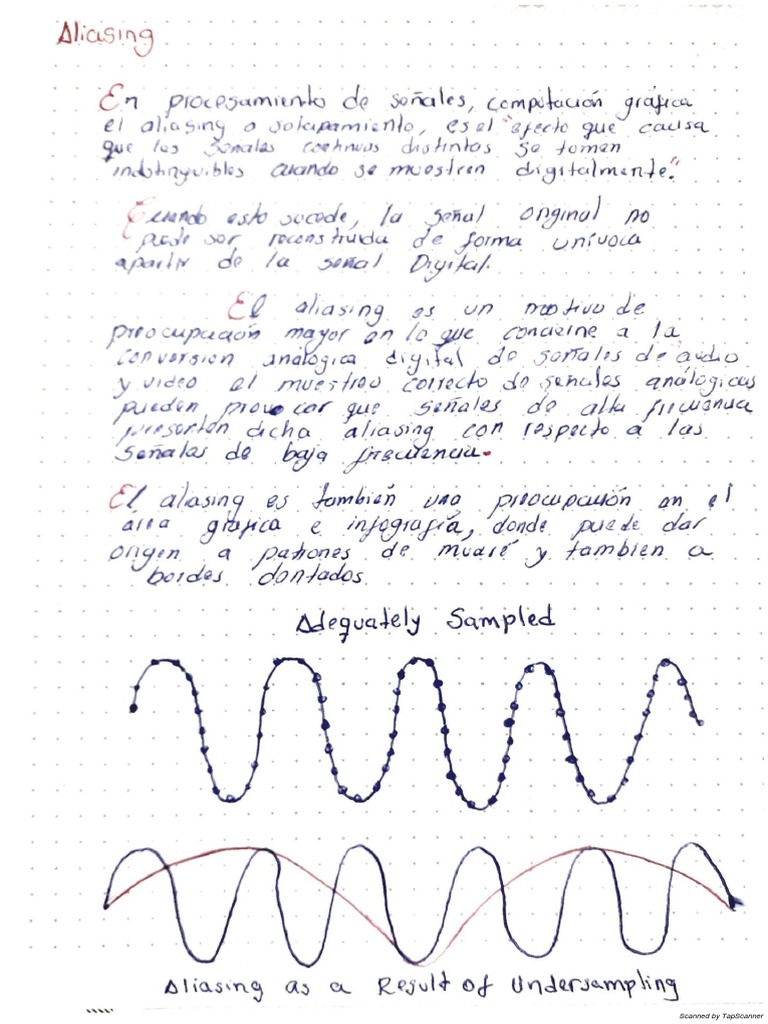 Aliasing
En procesamiento de señales, computación gráfica
el aliasing o solapamiento, es el "efecto que causa
que las señales continuas distintas se tornen
indistinguibles cuando se muestren digitalmente."
Cuando esto sucede, la señal original no
puede ser reconstruida de forma univoca
apartir de la señal Digital.
El aliasing es un motivo de
preocupación mayor en lo que concierne a la
conversion analógica digital de señales de audio
y video el muestreo correcto de señales analógicas
pueden provocar que señales de alta frecuencia
presenten dicha aliasing con respecto a las
señales de baja frecuencia.
El aliasing es también una preocupación en el
área gráfica e infografía, donde puede dar
origen a patrones de muaré y tambien a
bordes dentados
Adequately Sampled
Aliasing as a Result of Undersampling
Scanned by TapScanner